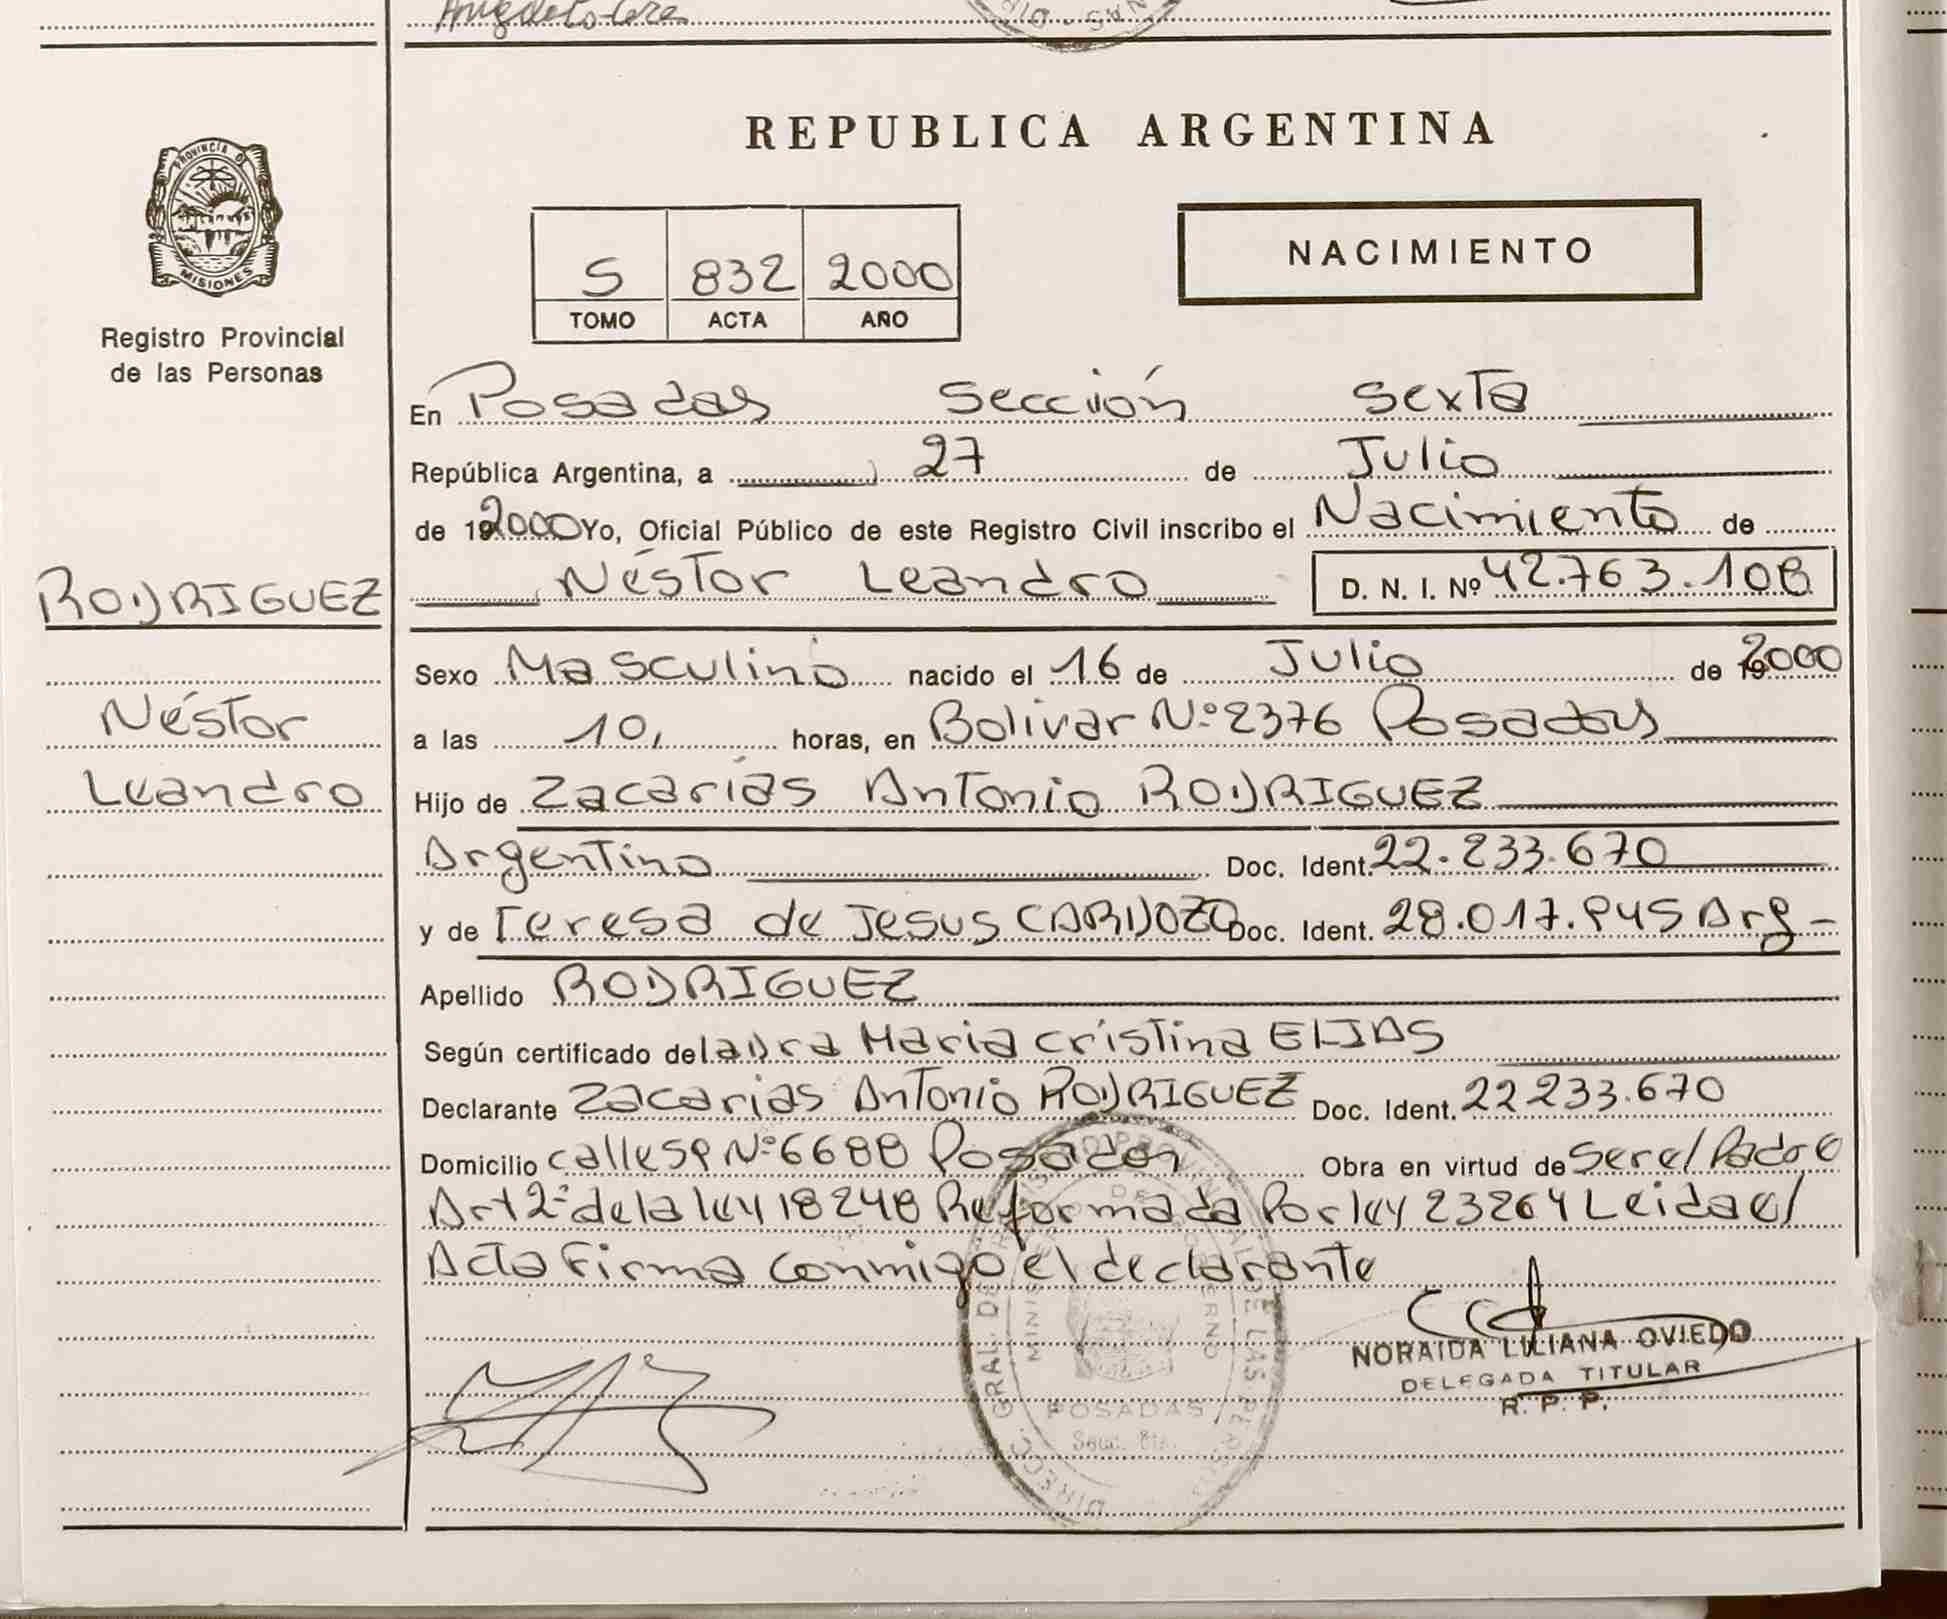 PROVINCIA DE
MISIONES
Registro Provincial
de las Personas
RODRIGUEZ
Néstor
Leandro
REPUBLICA ARGENTINA
5 832 2000
TOMO ACTA AÑO
NACIMIENTO
En Posadas Sección Sexta
República Argentina, a 27 de Julio
de 192000 Yo, Oficial Público de este Registro Civil inscribo el Nacimiento de
Néstor Leandro D. N. I. Nº 42.763.108
Sexo Masculino nacido el 16 de Julio de 192000
a las 10, horas, en Bolivar Nº 2376 Posadas
Hijo de Zacarías Antonio RODRIGUEZ
Argentino Doc. Ident. 22.233.670
y de Teresa de Jesus CARDOZO Doc. Ident. 28.017.945 Arg
Apellido RODRIGUEZ
Según certificado de la Dra Maria Cristina ELIAS
Declarante Zacarias Antonio RODRIGUEZ Doc. Ident. 22233.670
Domicilio calle 59 Nº 6688 Posadas Obra en virtud de Ser el Padre
Art 2º de la ley 18248 Reformada Por ley 23264 Leida el
Acta Firma conmigo el declarante
NORAIDA LILIANA OVIEDO
DELEGADA TITULAR
R. P. P.
POSADAS